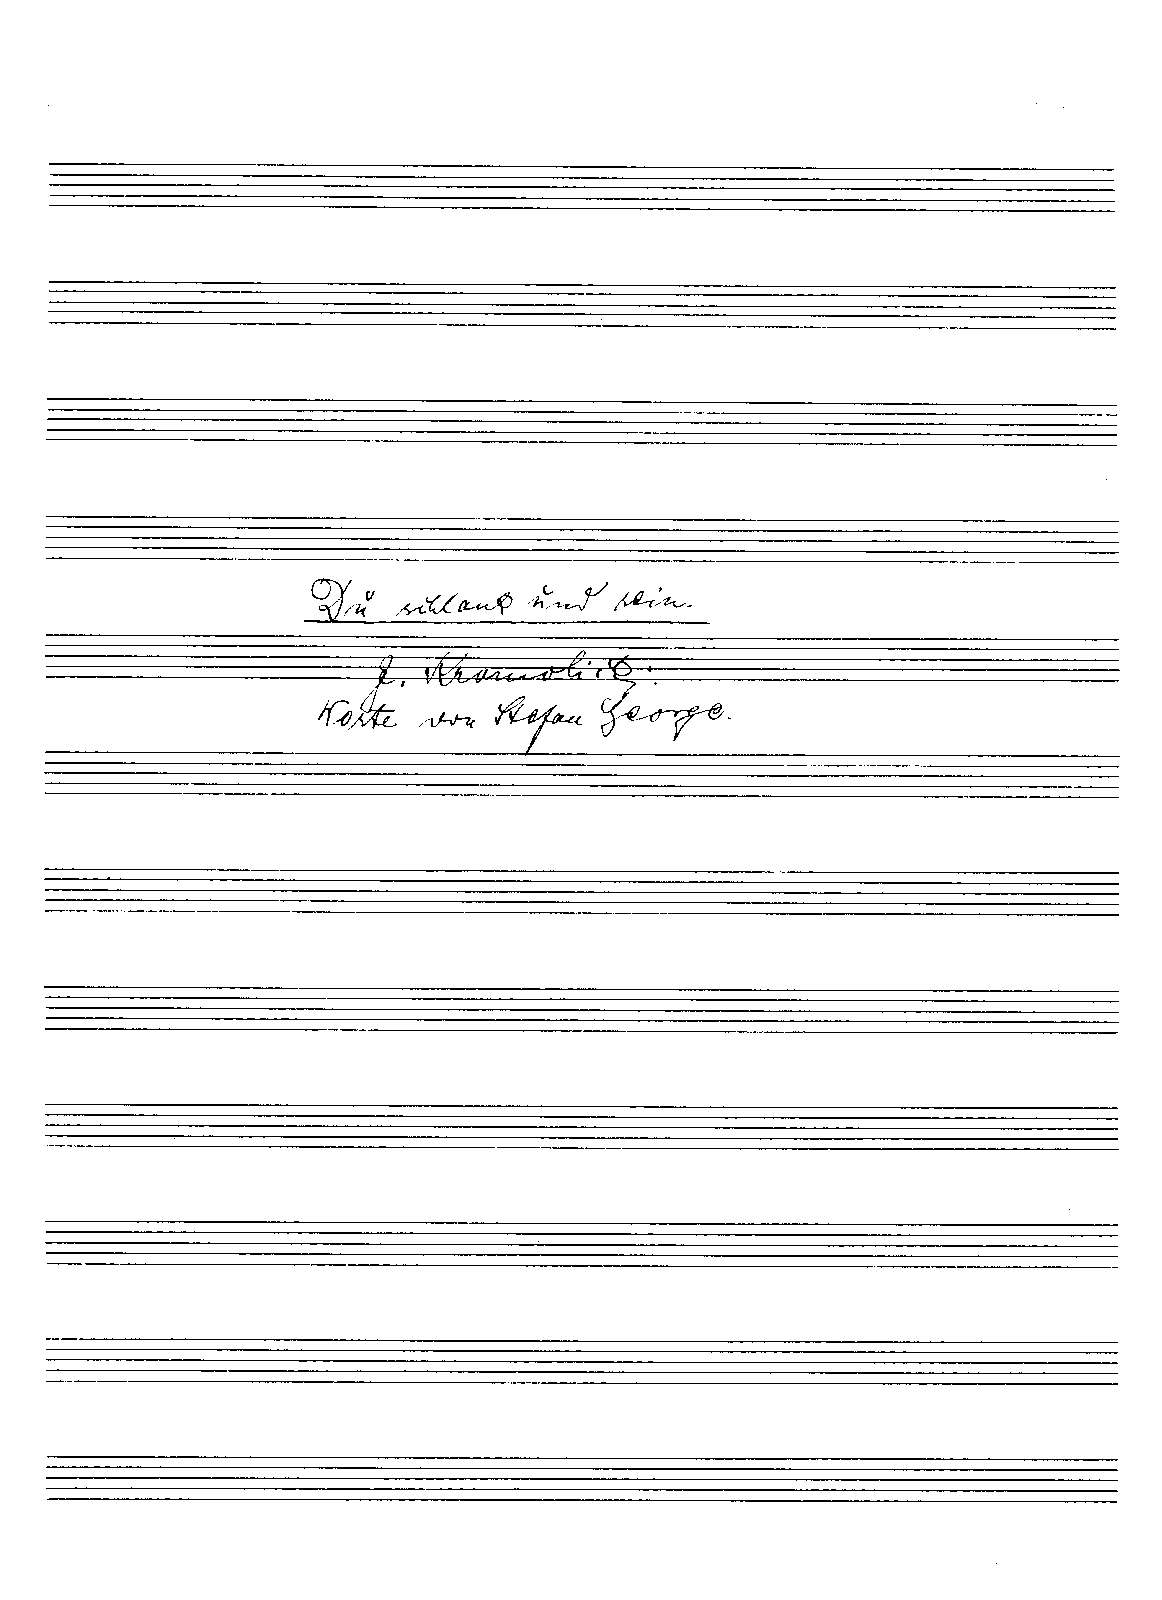 Du schlank und rein.
J. Kromolicki.
Worte von Stefan George.